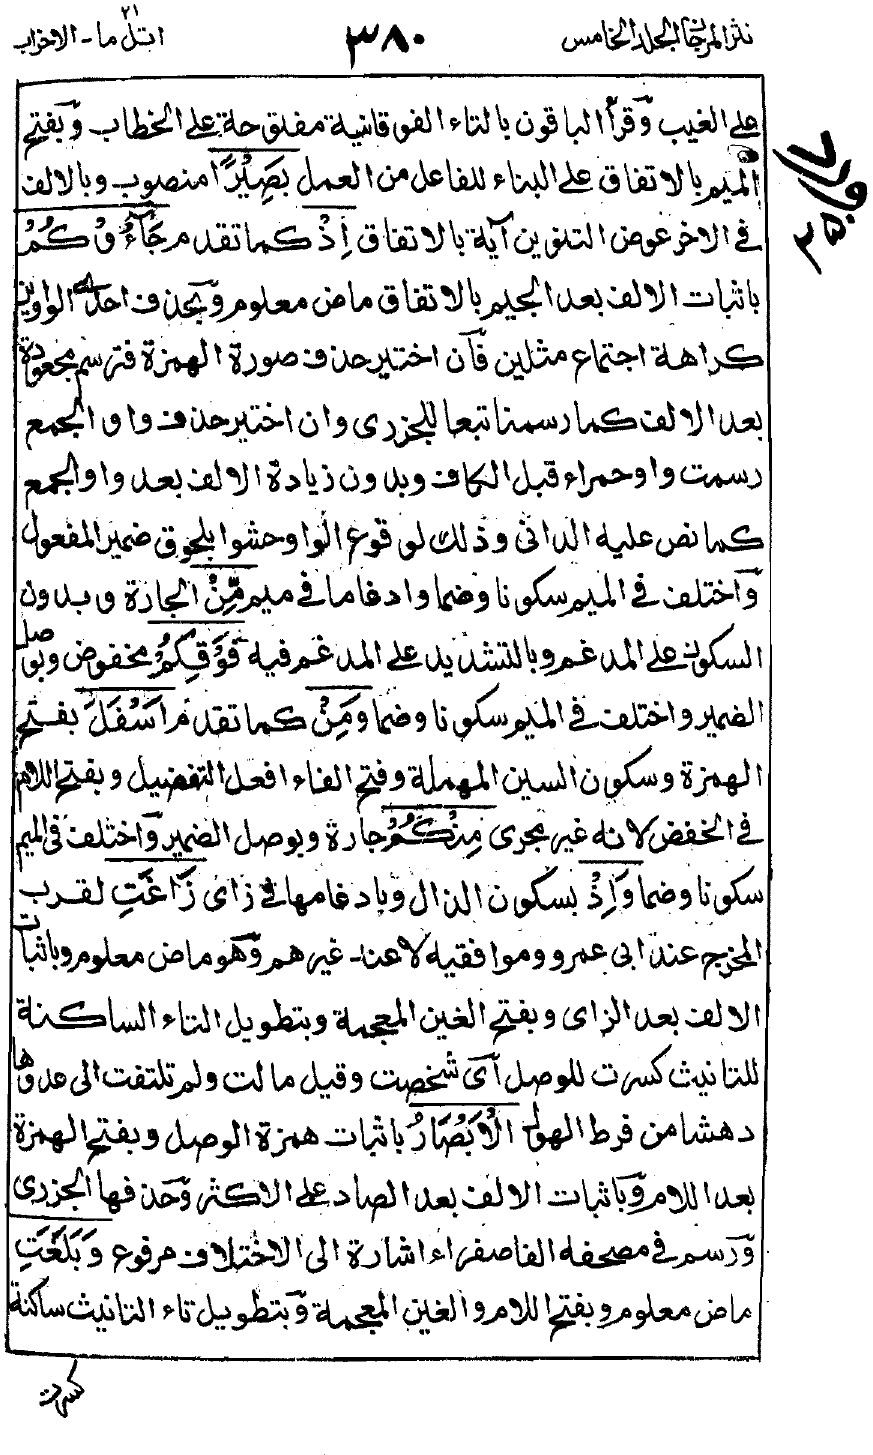 نثر المرجان الجلد الخامس ٣٨٠ اتل ما - الاحزاب ٢١
على الغيب وقرأ الباقون بالتاء الفوقانية مفتوحة على الخطاب وبفتح
الميم بالاتفاق على البناء للفاعل من العمل بَصِيْرًا منصوب وبالالف
في الاخر عوض التنوين آية بالاتفاق اِذْ كما تقدم جَآءُوْكُمْ
باثبات الالف بعد الجيم بالاتفاق ماض معلوم وبحذف احدى الواوين
كراهة اجتماع مثلين فان اختير حذف صورة الهمزة فترسم مجعودة
بعد الالف كما رسمنا تبعا للجزرى وان اختير حذف واو الجمع
رسمت واو حمراء قبل الكاف وبدون زيادة الالف بعد واو الجمع
كما نص عليه الدانى وذلك لوقوع الواو حشوا بلحوق ضمير المفعول
واختلف في الميم سكونا وضما وادغاما في ميم مِّنْ الجارة وبدون
السكون على المدغم وبالتشديد على المدغم فيه فَوْقِكُمْ مخفوض وبوصل
الضمير واختلف في الميم سكونا وضما وَمِنْ كما تقدم اَسْفَلَ بفتح
الهمزة وسكون السين المهملة وفتح الفاء افعل التفضيل وبفتح اللام
في الخفض لانه غير مجرى مِنْكُمْ جارة وبوصل الضمير واختلف في الميم
سكونا وضما وَاِذْ بسكون الذال وبادغامها في زاى زَاغَتِ لقرب
المخرج عند ابى عمرو وموافقيه لا عند غيرهم وهو ماض معلوم وباثبات
الالف بعد الزاى وبفتح الغين المعجمة وبتطويل التاء الساكنة
للتانيث كسرت للوصل اى شخصت وقيل مالت ولم تلتفت الى عدوها
دهشا من فرط الهول الْاَبْصَارُ باثبات همزة الوصل وبفتح الهمزة
بعد اللام وباثبات الالف بعد الصاد على الاكثر وحذفها الجزرى
ورسم في مصحفه الفا صفراء اشارة الى الاختلاف مرفوع وَبَلَغَتِ
ماض معلوم وبفتح اللام والغين المعجمة وبتطويل تاء التانيث ساكنة
كسرت